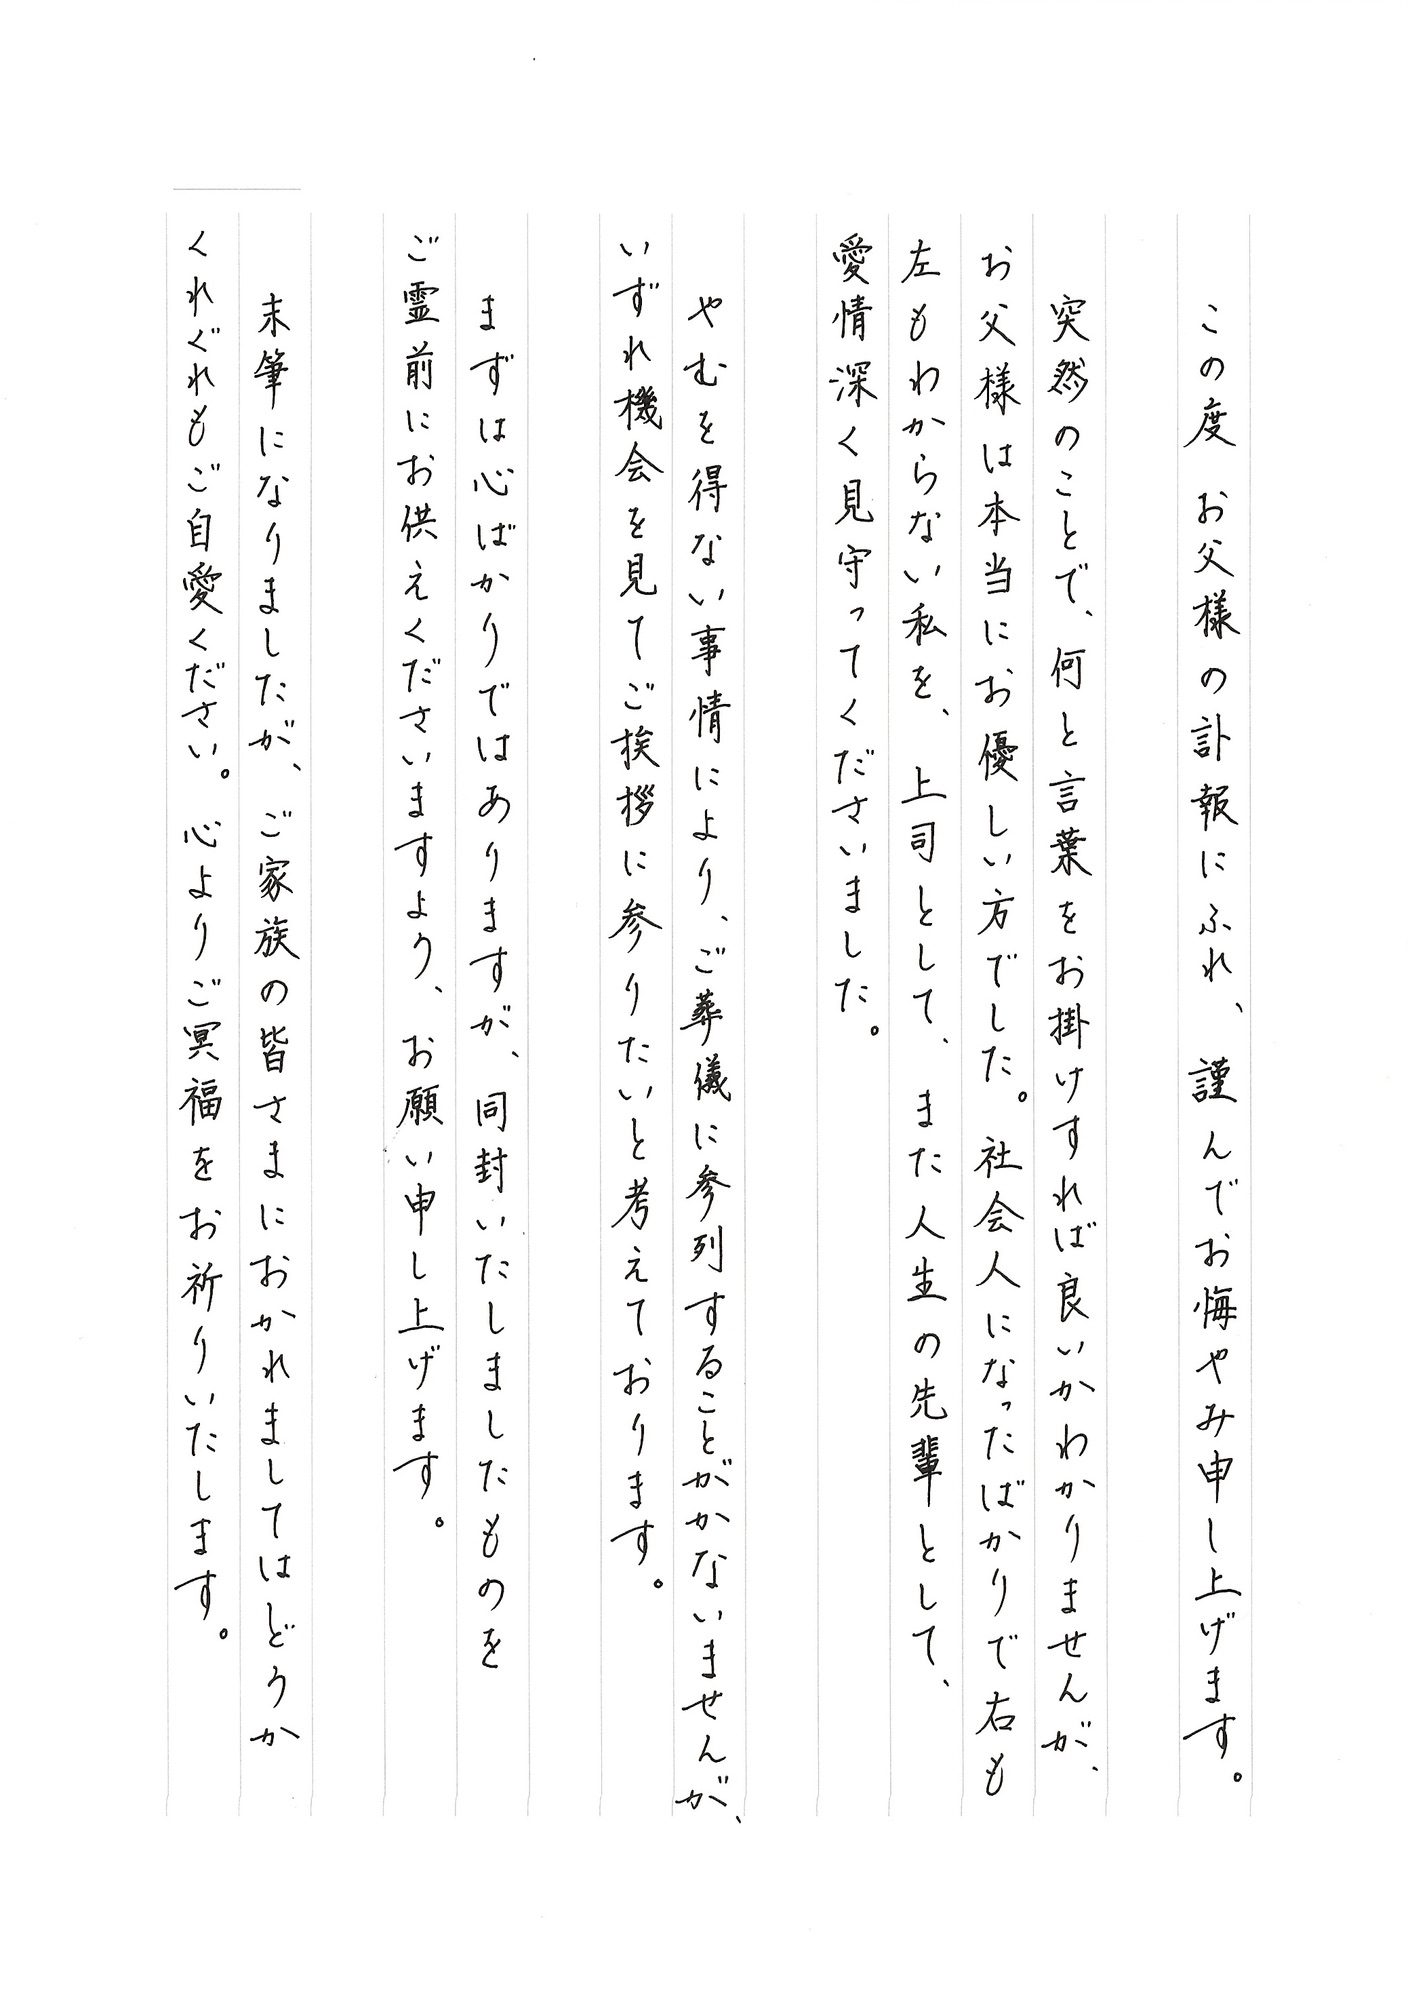 この度　お父様の訃報にふれ、謹んでお悔やみ申し上げます。
突然のことで、何と言葉をお掛けすれば良いかわかりませんが、
お父様は本当にお優しい方でした。社会人になったばかりで右も
左もわからない私を、上司として、また人生の先輩として、
愛情深く見守ってくださいました。
やむを得ない事情により、ご葬儀に参列することがかないませんが、
いずれ機会を見てご挨拶に参りたいと考えております。
まずは心ばかりではありますが、同封いたしましたものを
ご霊前にお供えくださいますよう、お願い申し上げます。
末筆になりましたが、ご家族の皆さまにおかれましてはどうか
くれぐれもご自愛ください。心よりご冥福をお祈りいたします。